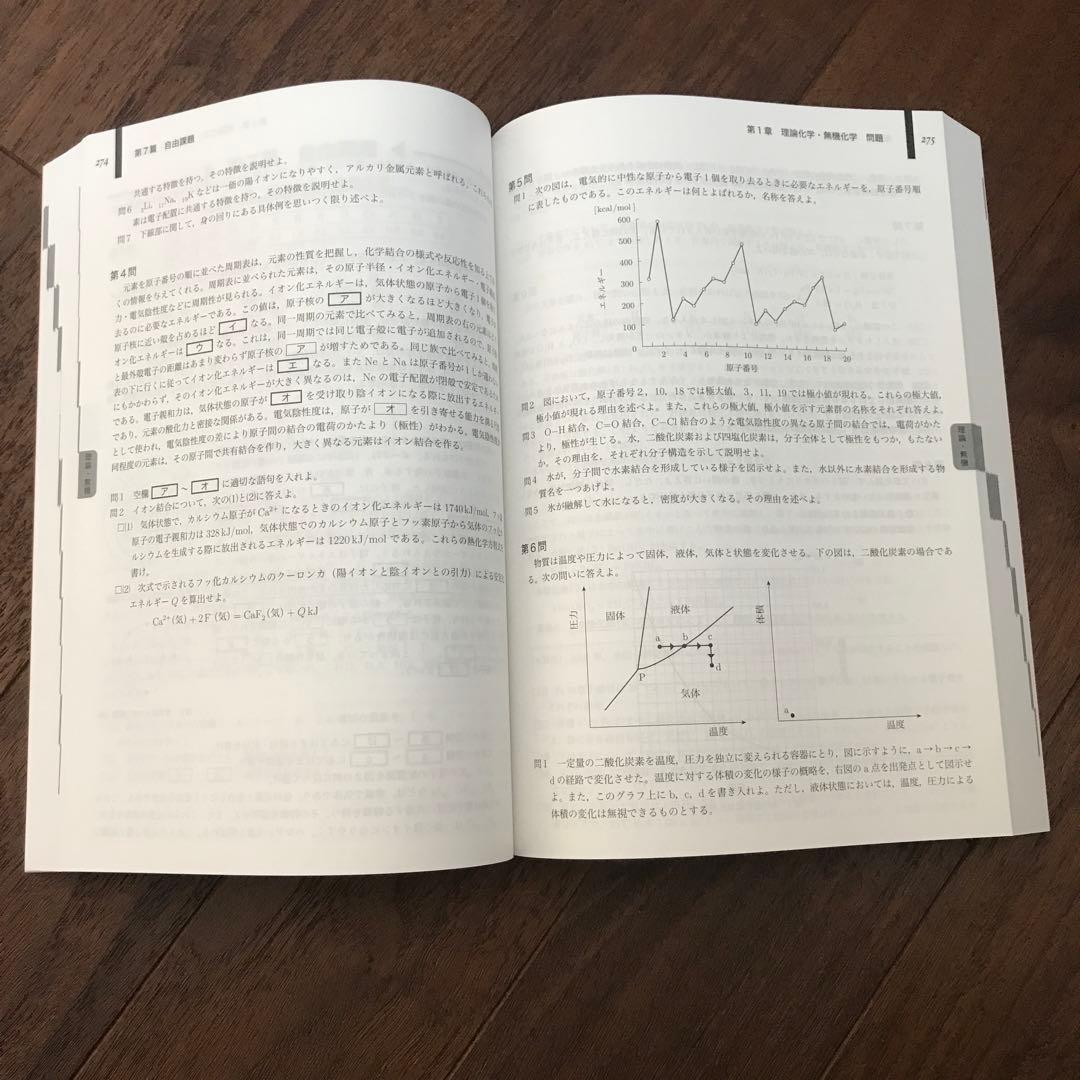 274
第7篇 自由課題
共通する特徴を持つ。その特徴を説明せよ。
問6 ₃Li, ₁₁Na, ₁₉K などは一価の陽イオンになりやすく，アルカリ金属元素と呼ばれる。これら
素は電子配置に共通する特徴を持つ。その特徴を説明せよ。
問7 下線部に関して，身の回りにある具体例を思いつく限り述べよ。
第4問
元素を原子番号の順に並べた周期表は，元素の性質を把握し，化学結合の様式や反応性を知る上で
くの情報を与えてくれる。周期表に並べられた元素は，その原子半径・イオン化エネルギー・電子親和
力・電気陰性度などに周期性が見られる。イオン化エネルギーは，気体状態の原子から電子1個を
去るのに必要なエネルギーである。この値は，原子核の ア が大きくなるほど大きくなり，電子
原子核に近い殻を占めるほど イ なる。同一周期の元素で比べてみると，周期表の右の元素ほど
オン化エネルギーは ウ なる。これは，同一周期では同じ電子殻に電子が追加されるので，原子核
と最外殻電子の距離はあまり変わらず原子核の ア が増すためである。同じ族で比べてみると，周期
表の下に行くに従ってイオン化エネルギーは エ なる。また Ne と Na は原子番号が1しか違わない
にもかかわらず，そのイオン化エネルギーが大きく異なるのは，Ne の電子配置が閉殻で安定であるため
である。電子親和力は，気体状態の原子が オ を受け取り陰イオンになる際に放出するエネルギー
であり，元素の酸化力と密接な関係がある。電気陰性度は，原子が オ を引き寄せる能力を
として使われ，電気陰性度の差により原子間の結合の電荷のかたより（極性）がわかる。電気陰性度が
同程度の元素は，その原子間で共有結合を作り，大きく異なる元素はイオン結合を作る。
問1 空欄 ア ～ オ に適切な語句を入れよ。
問2 イオン結合について，次の(1)と(2)に答えよ。
□(1) 気体状態で，カルシウム原子が Ca²⁺ になるときのイオン化エネルギーは 1740 kJ/mol，フッ素
原子の電子親和力は 328 kJ/mol，気体状態でのカルシウム原子とフッ素原子から気体のフッ化カ
ルシウムを生成する際に放出されるエネルギーは 1220 kJ/mol である。これらの熱化学方程式を
書け。
□(2) 次式で示されるフッ化カルシウムのクーロン力（陽イオンと陰イオンとの引力）による安定化
エネルギー Q を算出せよ。
Ca²⁺(気) + 2F⁻(気) = CaF₂(気) + Q kJ
理論・無機
第1章 理論化学・無機化学 問題
275
第5問
問1 次の図は，電気的に中性な原子から電子1個を取り去るときに必要なエネルギーを，原子番号順
に表したものである。このエネルギーは何とよばれるか，名称を答えよ。
[kcal/mol]
600
500
400
300
200
100
0
エネルギー
2 4 6 8 10 12 14 16 18 20
原子番号
問2 図において，原子番号 2，10，18 では極大値，3，11，19 では極小値が現れる。これらの極大値，
極小値が現れる理由を述べよ。また，これらの極大値，極小値を示す元素群の名称をそれぞれ答えよ。
問3 O−H 結合，C=O 結合，C−Cl 結合のような電気陰性度の異なる原子間の結合では，電荷がかた
より，極性が生じる。水，二酸化炭素および四塩化炭素は，分子全体として極性をもつか，もたない
か。その理由を，それぞれ分子構造を示して説明せよ。
問4 水が，分子間で水素結合を形成している様子を図示せよ。また，水以外に水素結合を形成する物
質名を一つあげよ。
問5 氷が融解して水になると，密度が大きくなる。その理由を述べよ。
理論・無機
第6問
物質は温度や圧力によって固体，液体，気体と状態を変化させる。下の図は，二酸化炭素の場合であ
る。次の問いに答えよ。
圧力
固体
液体
a b c
d
P
気体
温度
体積
a
温度
問1 一定量の二酸化炭素を温度，圧力を独立に変えられる容器にとり，図に示すように，a→b→c→
d の経路で変化させた。温度に対する体積の変化の様子の概略を，右図の a 点を出発点として図示せ
よ。また，このグラフ上に b，c，d を書き入れよ。ただし，液体状態においては，温度，圧力による
体積の変化は無視できるものとする。